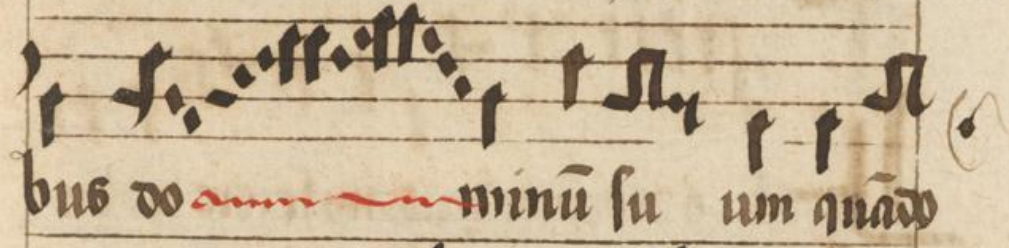 bus do minū su um quādo